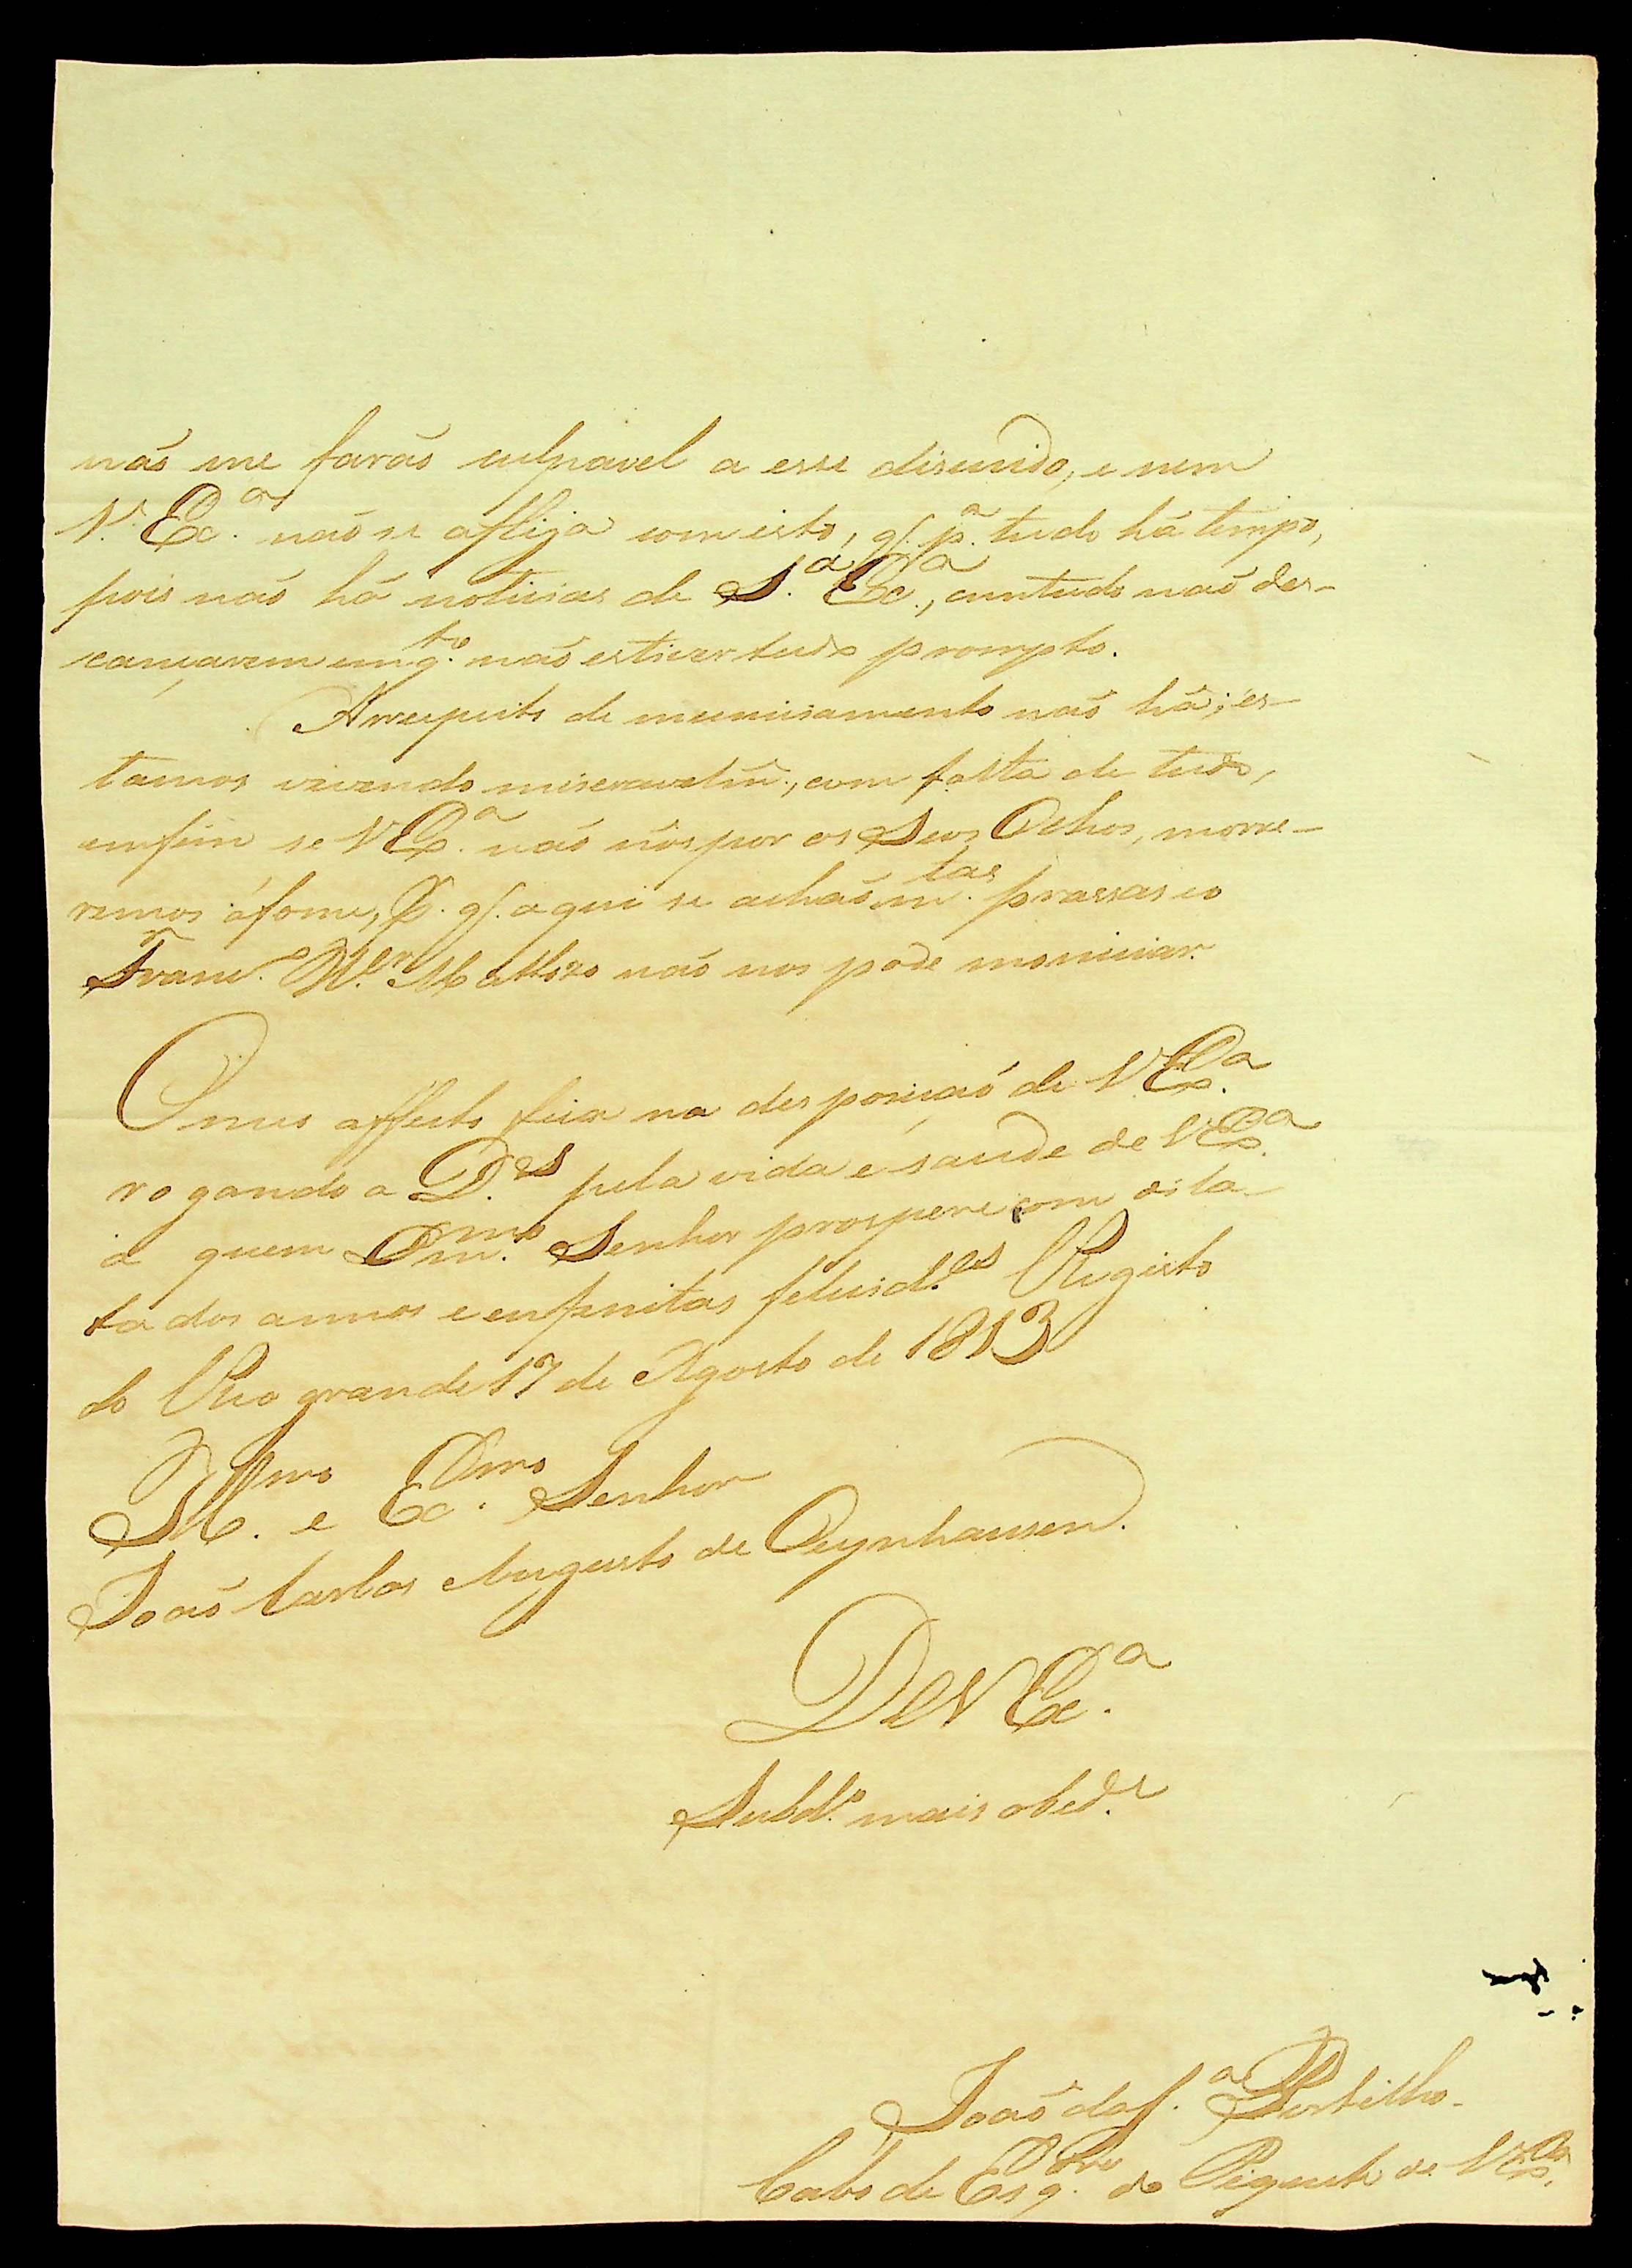 não me farão culpavel a esse discuido, e nem
V. Ex.ª não se afflija com isto, q̃. p.ª tudo há tempo,
pois não há noticias de S.ª Ex.ª, comtudo não des-
cançarem emq.to não estiver tudo prompto.
Arrespeito de municiamento não há; es-
tamos vivendo miseravelm̃., com falta de tudo,
emfim se V Ex.ª não nós por os Seos Oohos, morre-
remos áfome, P. q̃. aqui se achaó m.tas prassas eo
Franc. M.el Mattozo não nos pode moniciar.
O meo affecto fica na desposição de V Ex.ª
rogando a D.es pela vida e saude de V Ex.ª
a quem Omm.o Senhor prospere com dila-
tados annos e enfenitas felicid.es Registo
do Rio grande 17 de Agosto de 1813
Ill.mo e Ex.mo Senhor
João Carlos Augusto de Oeynhausen.
De V Ex.ª
Subd.o mais obed.e
João daf.ª Portilho.
Cabo de Esq.dra do Piquete de V Ex.ª